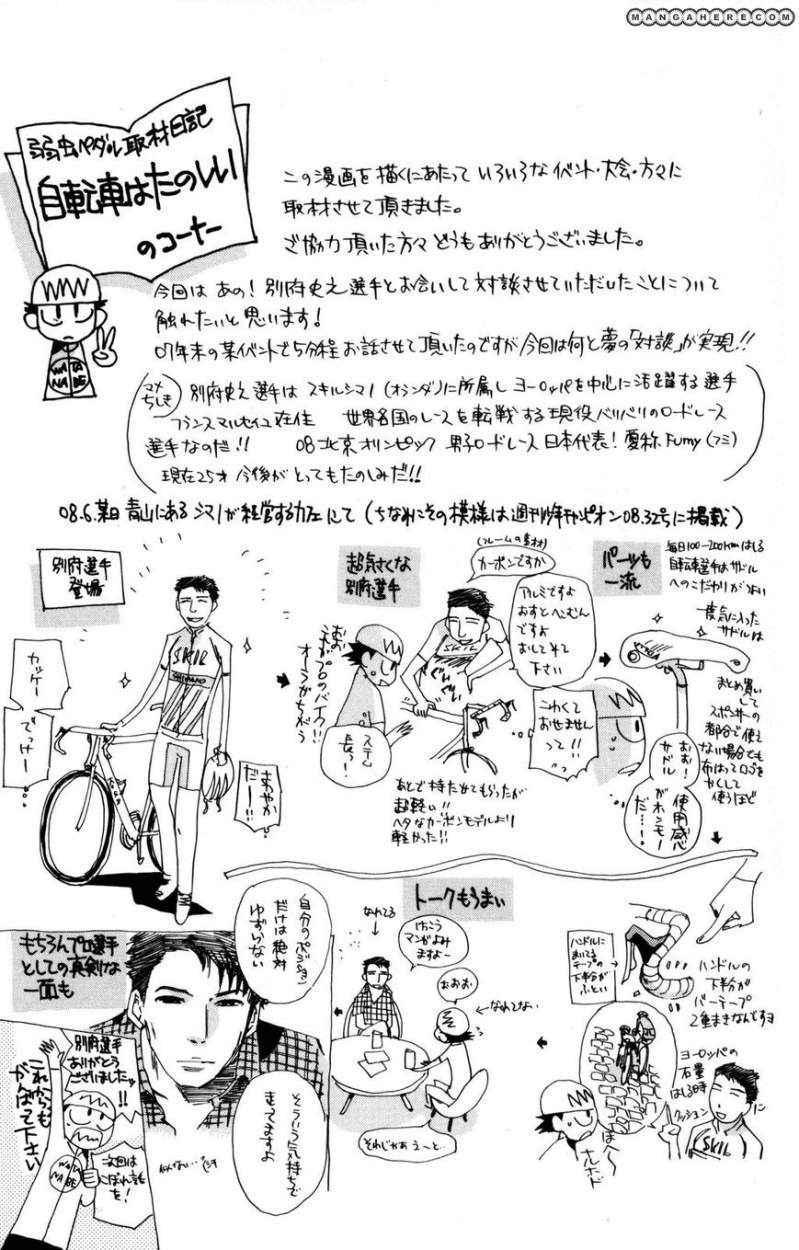 MANGAHERE.COM
弱虫ペダル取材日記
自転車はたのしい
のコーナー
この漫画を描くにあたって いろいろなイベント・大会・方々に
取材させて頂きました。
ご協力頂いた方々 どうもありがとうございました。
今回は あの!別府史之選手とお会いして対談させていただいたことについて
触れたいと思います!
07年末の某イベントで5分程お話させて頂いたのですが今回は何と夢の「対談」が実現!!
マメちしき
別府史之選手は スキルシマノ(オランダ)に所属し ヨーロッパを中心に活躍する選手
フランスマルセイユ在住 世界各国のレースを転戦する現役バリバリのロードレース
選手なのだ!! 08北京オリンピック 男子ロードレース日本代表!愛称Fumy(フミ)
現在25才 今後がとってもたのしみだ!!
08.6.某日 青山にある シマノが経営するカフェにて(ちなみにその模様は週刊少年チャンピオン08.32号に掲載)
別府選手
登場
カッケー
でっけー
さわやか
だー!!
SKIL
SHIMANO
超気さくな
別府選手
(フレームの素材)
カーボンですか
アルミですよ
おすとへこむん
ですよ
おしてみて
下さい
プロのバイク
オーラがちがう!!
ステム
長っ!
SKIL
ぐいぐい
こわくて
おせません
って!!
あとで持たせてもらったが
超軽い!!
ヘタなカーボンモデルより
軽かった!!
パーツも
一流
毎日100〜200kmはしる
自転車選手はサドル
へのこだわりがつよい
一度気に入った
サドルは
まとめ買い
して
スポンサーの
都合で使え
ない場合でも
布はってロゴを
かくして
使うほど
おお!
サドル
使用感
がホンモノ
だ…!
ハンドルに
まいてる
テープの
下半分が
ぶっとい
ハンドルの
下半分が
バーテープ
2重まきなんですヨ
ヨーロッパの
石畳
はしる時
クッション
に
SKIL
はへ〜
ナルホド
トークもうまい
なれてる
けっこう
マンガよみ
ますよー
おおお
←なれてない
それじゃあえーと…
もちろんプロ選手
としての真剣な
一面も
自分のポジション
だけは絶対
ゆずらない
そういう気持ちで
走ってますよ
別府選手
ありがとう
ございましたッ!!
これからも
がんばって下さい
次回は
こぼれ話
を!
WATA
NABE